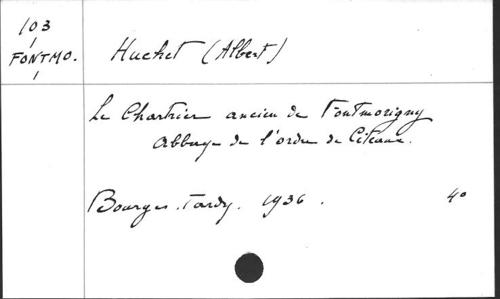 103
FONTMO.
Huchet (Albert)
Le Chartrier ancien de Fontmorigny
Abbaye de l'ordre de Citeaux.
Bourges. Tardy. 1936. 4°